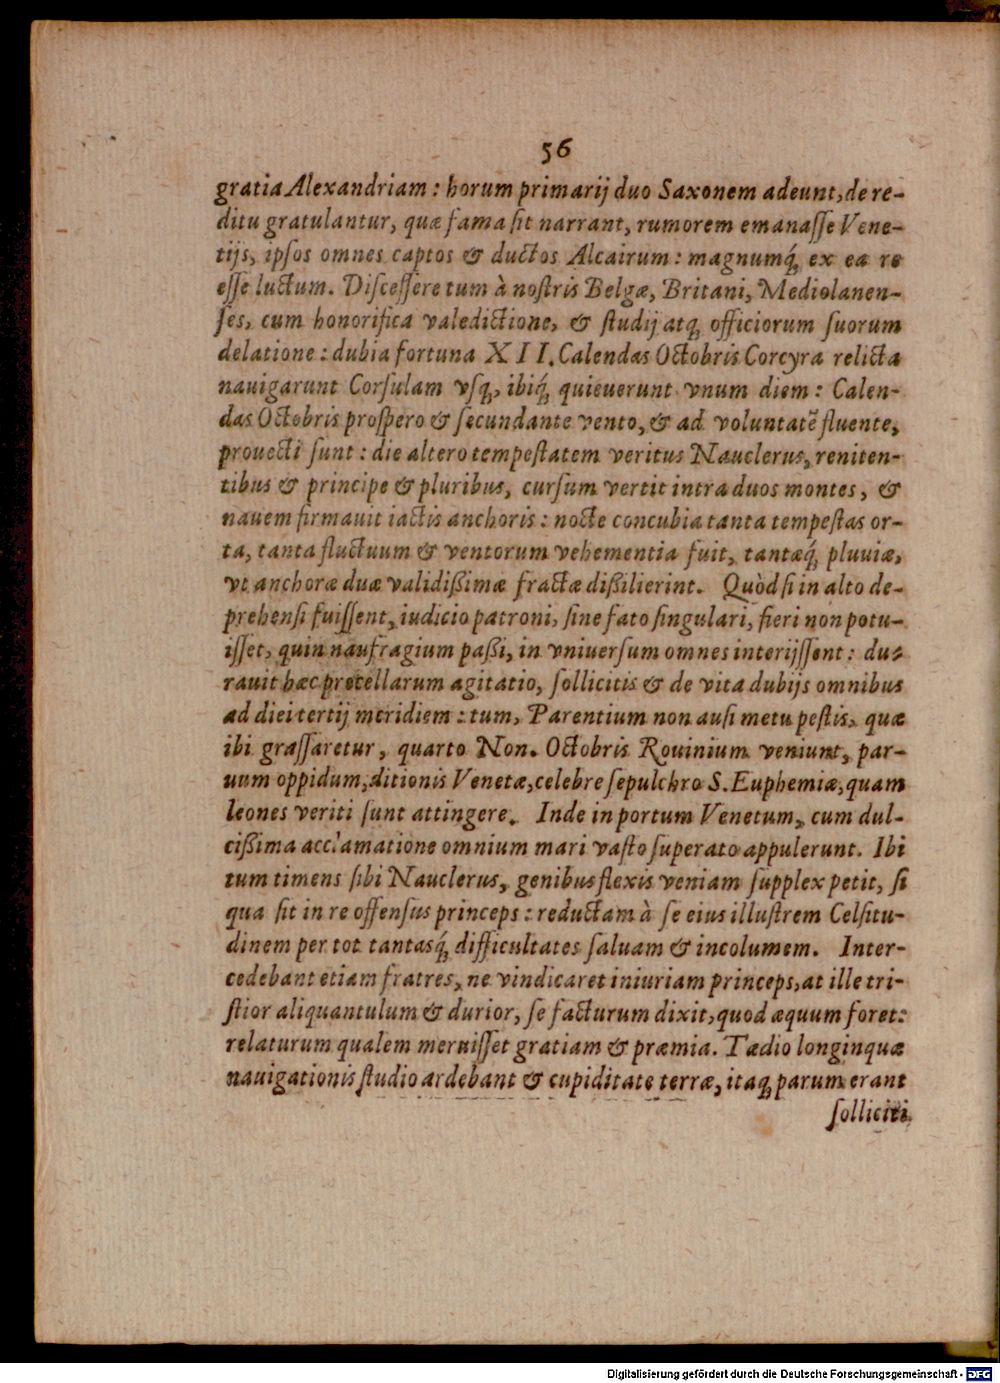 56
gratia Alexandriam: horum primarij duo Saxonem adeunt, de re-
ditu gratulantur, quæ fama ſit narrant, rumorem emanaſſe Vene-
tijs, ipſos omnes captos & ductos Alcairum: magnumq́; ex ea re
eſſe luctum. Diſceſſere tum à noſtris Belgæ, Britani, Mediolanen-
ſes, cum honorifica valedictione, & ſtudij atq; officiorum ſuorum
delatione: dubia fortuna XII. Calendas Octobris Corcyra relicta
nauigarunt Corſulam vſq;, ibiq́; quieuerunt vnum diem: Calen-
das Octobris proſpero & ſecundante vento, & ad voluntatẽ fluente,
prouecti ſunt: die altero tempeſtatem veritus Nauclerus, reniten-
tibus & principe & pluribus, curſum vertit intra duos montes, &
nauem firmauit iactis anchoris: nocte concubia tanta tempeſtas or-
ta, tanta fluctuum & ventorum vehementia fuit, tantæq́; pluuiæ,
vt anchoræ duæ validißimæ fractæ dißilierint. Quòd ſi in alto de-
prehenſi fuiſſent, iudicio patroni, ſine fato ſingulari, fieri non potu-
iſſet, quin naufragium paßi, in vniuerſum omnes interijſſent: du-
rauit hæc procellarum agitatio, ſollicitis & de vita dubijs omnibus
ad diei tertij meridiem: tum, Parentium non auſi metu peſtis, quæ
ibi graſſaretur, quarto Non. Octobris Rouinium veniunt, par-
uum oppidum, ditionis Venetæ, celebre ſepulchro S. Euphemiæ, quam
leones veriti ſunt attingere. Inde in portum Venetum, cum dul-
cißima acclamatione omnium mari vaſto ſuperato appulerunt. Ibi
tum timens ſibi Nauclerus, genibus flexis veniam ſupplex petit, ſi
qua ſit in re offenſus princeps: reductam à ſe eius illuſtrem Celſitu-
dinem per tot tantasq́; difficultates ſaluam & incolumem. Inter-
cedebant etiam fratres, ne vindicaret iniuriam princeps, at ille tri-
ſtior aliquantulum & durior, ſe facturum dixit, quod æquum foret:
relaturum qualem meruiſſet gratiam & præmia. Tædio longinquæ
nauigationis ſtudio ardebant & cupiditate terræ, itaq; parum erant
ſolliciti
Digitalisierung gefördert durch die Deutsche Forschungsgemeinschaft - DFG